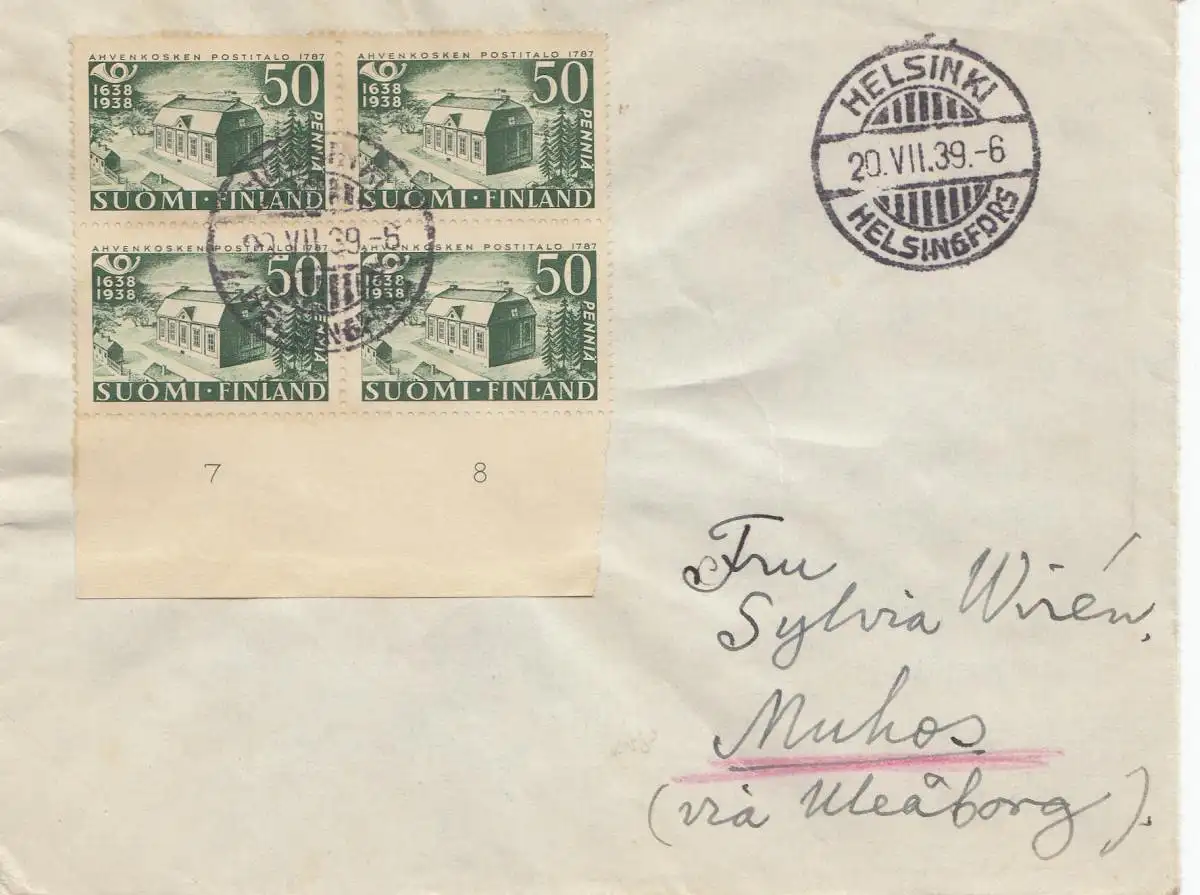 AHVENKOSKEN POSTITALO 1787
1638
1938
50
PENNIÄ
SUOMI · FINLAND
AHVENKOSKEN POSTITALO 1787
1638
1938
50
PENNIÄ
SUOMI · FINLAND
AHVENKOSKEN POSTITALO 1787
1638
1938
50
PENNIÄ
SUOMI · FINLAND
AHVENKOSKEN POSTITALO 1787
1638
1938
50
PENNIÄ
SUOMI · FINLAND
HELSINKI
20.VII.39.-6
HELSINGFORS
7 8
HELSINKI
20.VII.39.-6
HELSINGFORS
Fru
Sylvia Wirén,
Muhos
(via Uleåborg).